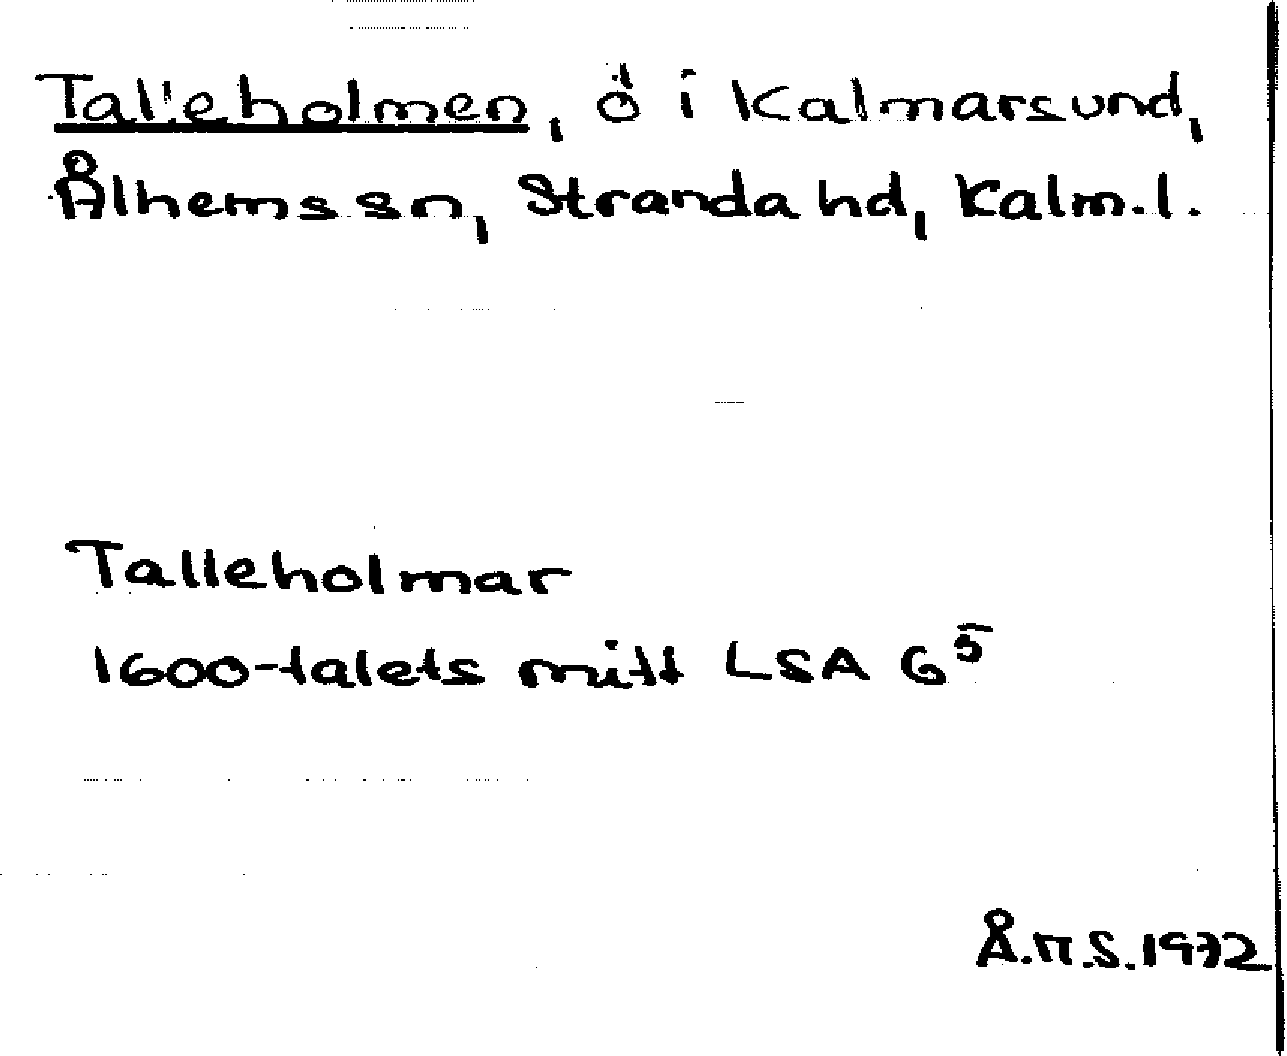 Talleholmen, ö i Kalmarsund,
Ålhems sn, Stranda hd, Kalm.l.
Talleholmar
1600-talets mitt LSA G⁵
Å.N.S.1972